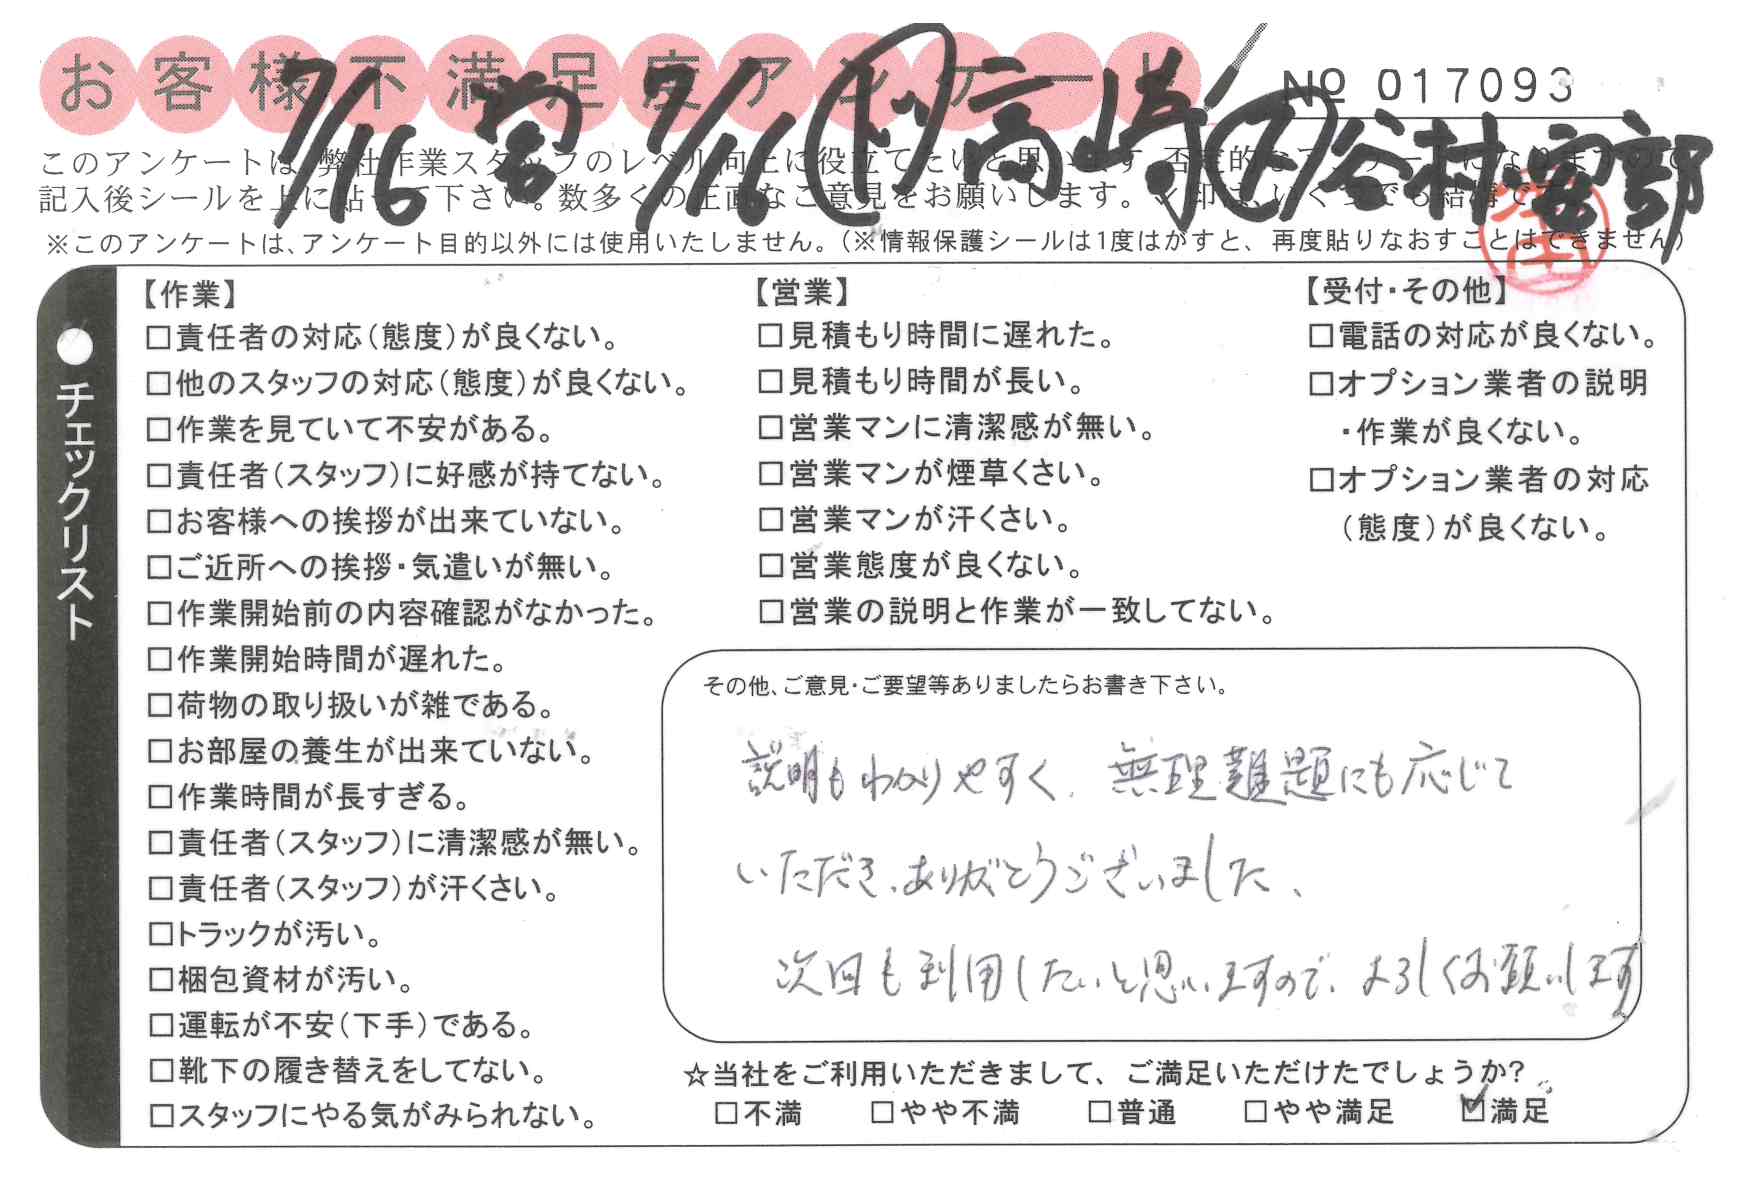 お客様不満足度アンケート
No 017093
7/16 営 7/16 高崎 谷村・安部
このアンケートは、弊社作業スタッフのレベル向上に役立てたいと思います。否定的なアンケートになりますので
記入後シールを上に貼って下さい。数多くの正直なご意見をお願いします。✓印は、いくつでも結構です。
※このアンケートは、アンケート目的以外には使用いたしません。(※情報保護シールは1度はがすと、再度貼りなおすことはできません)
●チェックリスト
【作業】
□責任者の対応(態度)が良くない。
□他のスタッフの対応(態度)が良くない。
□作業を見ていて不安がある。
□責任者(スタッフ)に好感が持てない。
□お客様への挨拶が出来ていない。
□ご近所への挨拶・気遣いが無い。
□作業開始前の内容確認がなかった。
□作業開始時間が遅れた。
□荷物の取り扱いが雑である。
□お部屋の養生が出来ていない。
□作業時間が長すぎる。
□責任者(スタッフ)に清潔感が無い。
□責任者(スタッフ)が汗くさい。
□トラックが汚い。
□梱包資材が汚い。
□運転が不安(下手)である。
□靴下の履き替えをしてない。
□スタッフにやる気がみられない。
【営業】
□見積もり時間に遅れた。
□見積もり時間が長い。
□営業マンに清潔感が無い。
□営業マンが煙草くさい。
□営業マンが汗くさい。
□営業態度が良くない。
□営業の説明と作業が一致してない。
【受付・その他】
□電話の対応が良くない。
□オプション業者の説明
・作業が良くない。
□オプション業者の対応
(態度)が良くない。
その他、ご意見・ご要望等ありましたらお書き下さい。
説明もわかりやすく、無理難題にも応じて
いただき、ありがとうございました、
次回も利用したいと思いますので、よろしくお願いします
☆当社をご利用いただきまして、ご満足いただけたでしょうか?
□不満 □やや不満 □普通 □やや満足 ☑満足